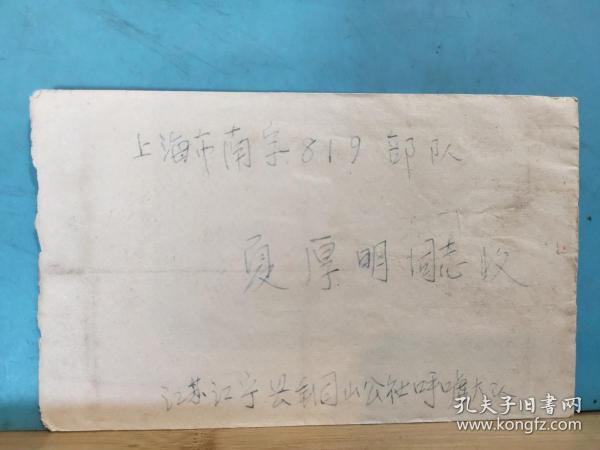 上海市南字819部队
夏厚明同志收
江苏江宁县铜山公社呼嘯大队
孔夫子旧书网
www.kongfz.com